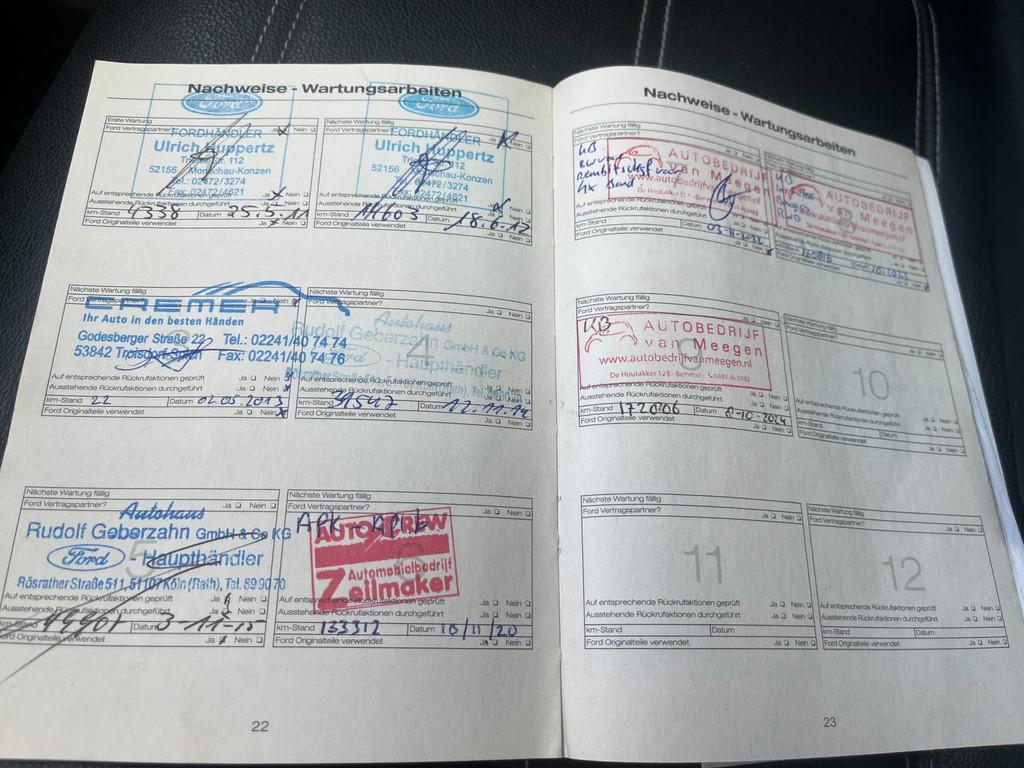 Nachweise - Wartungsarbeiten
Erste Wartung
Ford Vertragspartner? Ja Nein
Ford
FORDHÄNDLER
Ulrich Huppertz
Trierer Str. 112
52156 Monschau-Konzen
Tel.: 02472/3274
Fax: 02472/4621
Auf entsprechende Rückrufaktionen geprüft Ja Nein
Ausstehende Rückrufaktionen durchgeführt Ja Nein
km-Stand 4338 Datum 25.5.11
Ford Originalteile verwendet Ja Nein
Nächste Wartung fällig
Ford Vertragspartner? Ja Nein
Ford
FORDHÄNDLER
Ulrich Huppertz
Trierer Str. 112
52156 Monschau-Konzen
Tel.: 02472/3274
Fax: 02472/4621
Auf entsprechende Rückrufaktionen geprüft Ja Nein
Ausstehende Rückrufaktionen durchgeführt Ja Nein
km-Stand 14603 Datum 18.6.12
Ford Originalteile verwendet Ja Nein
Nächste Wartung fällig
Ford Vertragspartner? Ja Nein
CREMER
Ihr Auto in den besten Händen
Godesberger Straße 22 Tel.: 02241/40 74 74
53842 Troisdorf-Spich Fax: 02241/40 74 76
Auf entsprechende Rückrufaktionen geprüft Ja Nein
Ausstehende Rückrufaktionen durchgeführt Ja Nein
km-Stand 22 Datum 02.05.2013
Ford Originalteile verwendet Ja Nein
Nächste Wartung fällig
Ford Vertragspartner? Ja Nein
Autohaus
Rudolf Geberzahn GmbH & Co KG
4
Ford Haupthändler
Auf entsprechende Rückrufaktionen geprüft Ja Nein
Ausstehende Rückrufaktionen durchgeführt Ja Nein
km-Stand 41547 Datum 12.11.14
Ford Originalteile verwendet Ja Nein
Nächste Wartung fällig
Ford Vertragspartner? Ja Nein
Autohaus
Rudolf Geberzahn GmbH & Co KG
5
Ford Haupthändler
Rösrather Straße 511, 51107 Köln (Rath), Tel. 89 90 70
Auf entsprechende Rückrufaktionen geprüft Ja Nein
Ausstehende Rückrufaktionen durchgeführt Ja Nein
Datum 3-11-15
Ford Originalteile verwendet Ja Nein
Nächste Wartung fällig
Ford Vertragspartner? Ja Nein
APK - APRIL
AUTOCREW
6
Automobielbedrijf
Zeilmaker
Auf entsprechende Rückrufaktionen geprüft Ja Nein
Ausstehende Rückrufaktionen durchgeführt Ja Nein
km-Stand 133312 Datum 10/11/20
Ford Originalteile verwendet Ja Nein
22
Nachweise - Wartungsarbeiten
Nächste Wartung fällig
Ford Vertragspartner?
AUTOBEDRIJF
van Meegen
www.autobedrijfvanmeegen.nl
Auf entsprechende Rückrufaktionen geprüft
Ausstehende Rückrufaktionen durchgeführt
km-Stand Datum
Ford Originalteile verwendet Ja Nein
AUTOBEDRIJF
van Meegen
Nächste Wartung fällig
Ford Vertragspartner?
KB
9
AUTOBEDRIJF
van Meegen
www.autobedrijfvanmeegen.nl
De Houtakker 12B - Bemmel
Auf entsprechende Rückrufaktionen geprüft
Ausstehende Rückrufaktionen durchgeführt Ja Nein
km-Stand Datum 8-10-2024
Ford Originalteile verwendet Ja Nein
Nächste Wartung fällig
Ford Vertragspartner? Ja Nein
10
Auf entsprechende Rückrufaktionen geprüft Ja Nein
Ausstehende Rückrufaktionen durchgeführt Ja Nein
km-Stand Datum
Ford Originalteile verwendet Ja Nein
Nächste Wartung fällig
Ford Vertragspartner? Ja Nein
11
Auf entsprechende Rückrufaktionen geprüft Ja Nein
Ausstehende Rückrufaktionen durchgeführt Ja Nein
km-Stand Datum
Ford Originalteile verwendet Ja Nein
Nächste Wartung fällig
Ford Vertragspartner? Ja Nein
12
Auf entsprechende Rückrufaktionen geprüft Ja Nein
Ausstehende Rückrufaktionen durchgeführt Ja Nein
km-Stand Datum
Ford Originalteile verwendet Ja Nein
23